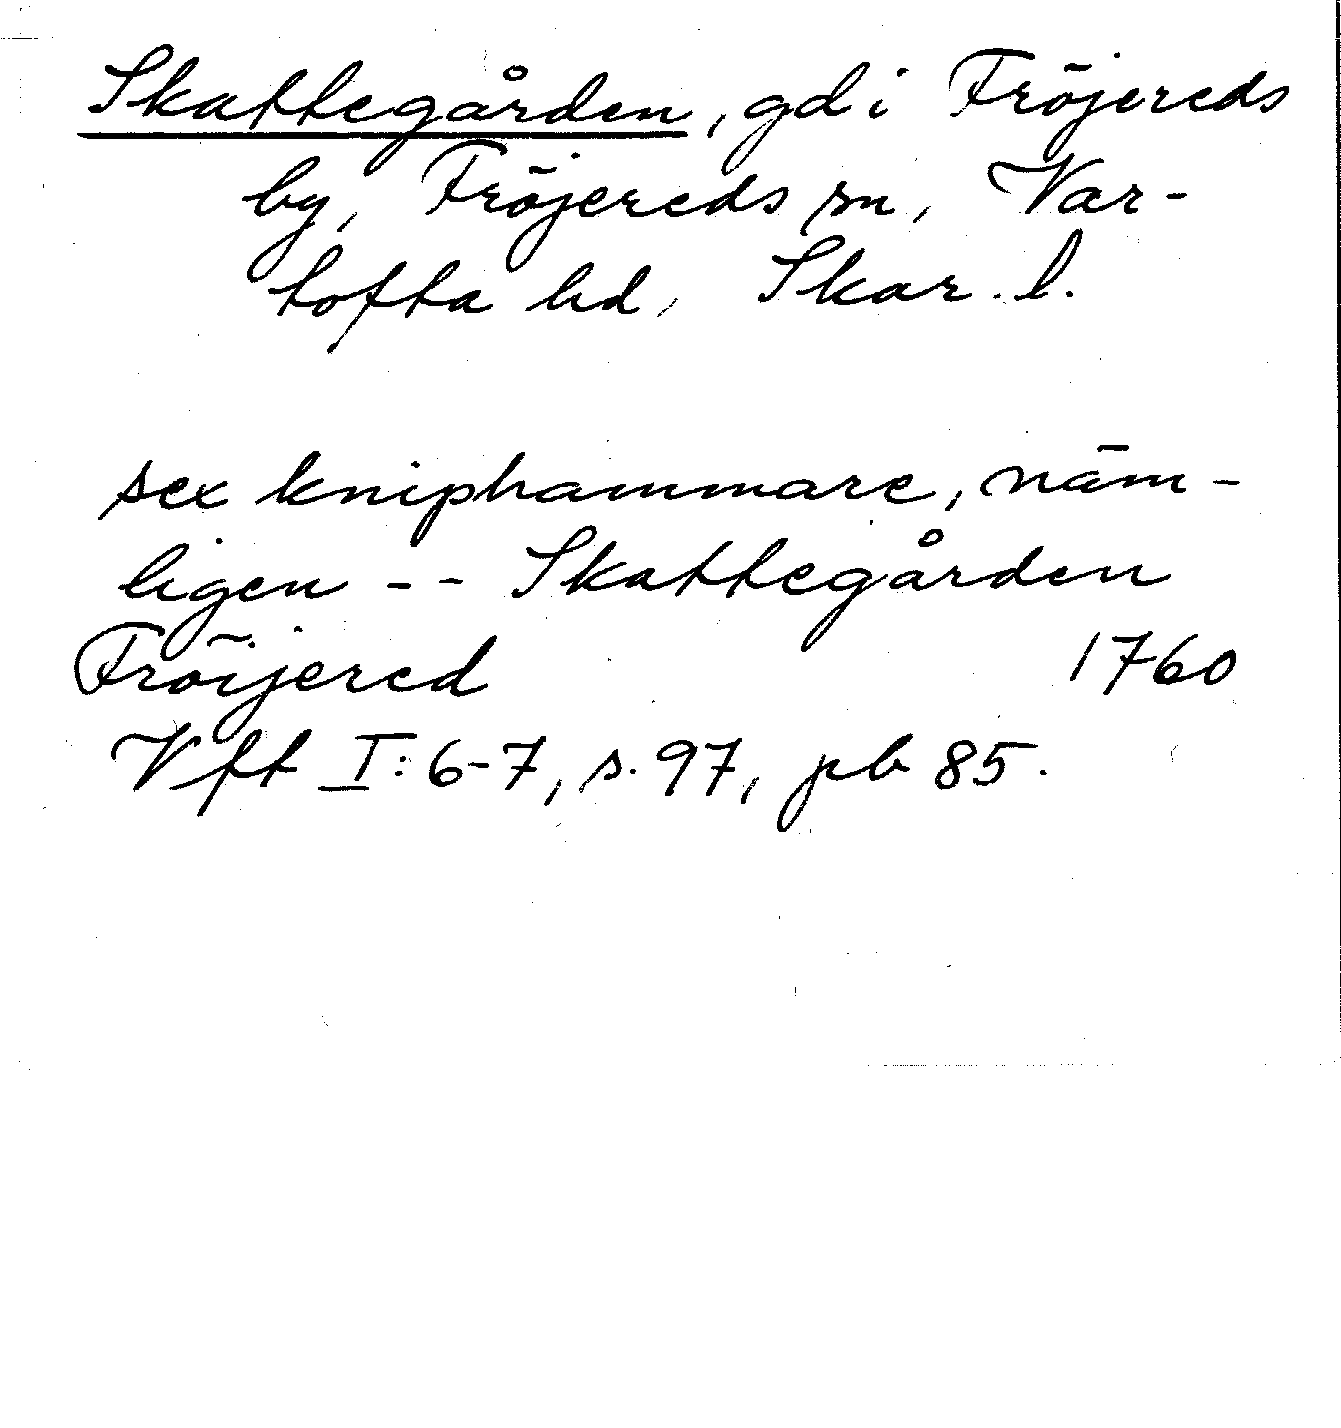 Skattegården, gd i Fröjereds
by, Fröjereds sn, Var-
tofta hd, Skar. l.
sex kniphammare, näm-
ligen -- Skattegården
Fröijered 1760
Vft I:6-7, s. 97, pb 85.